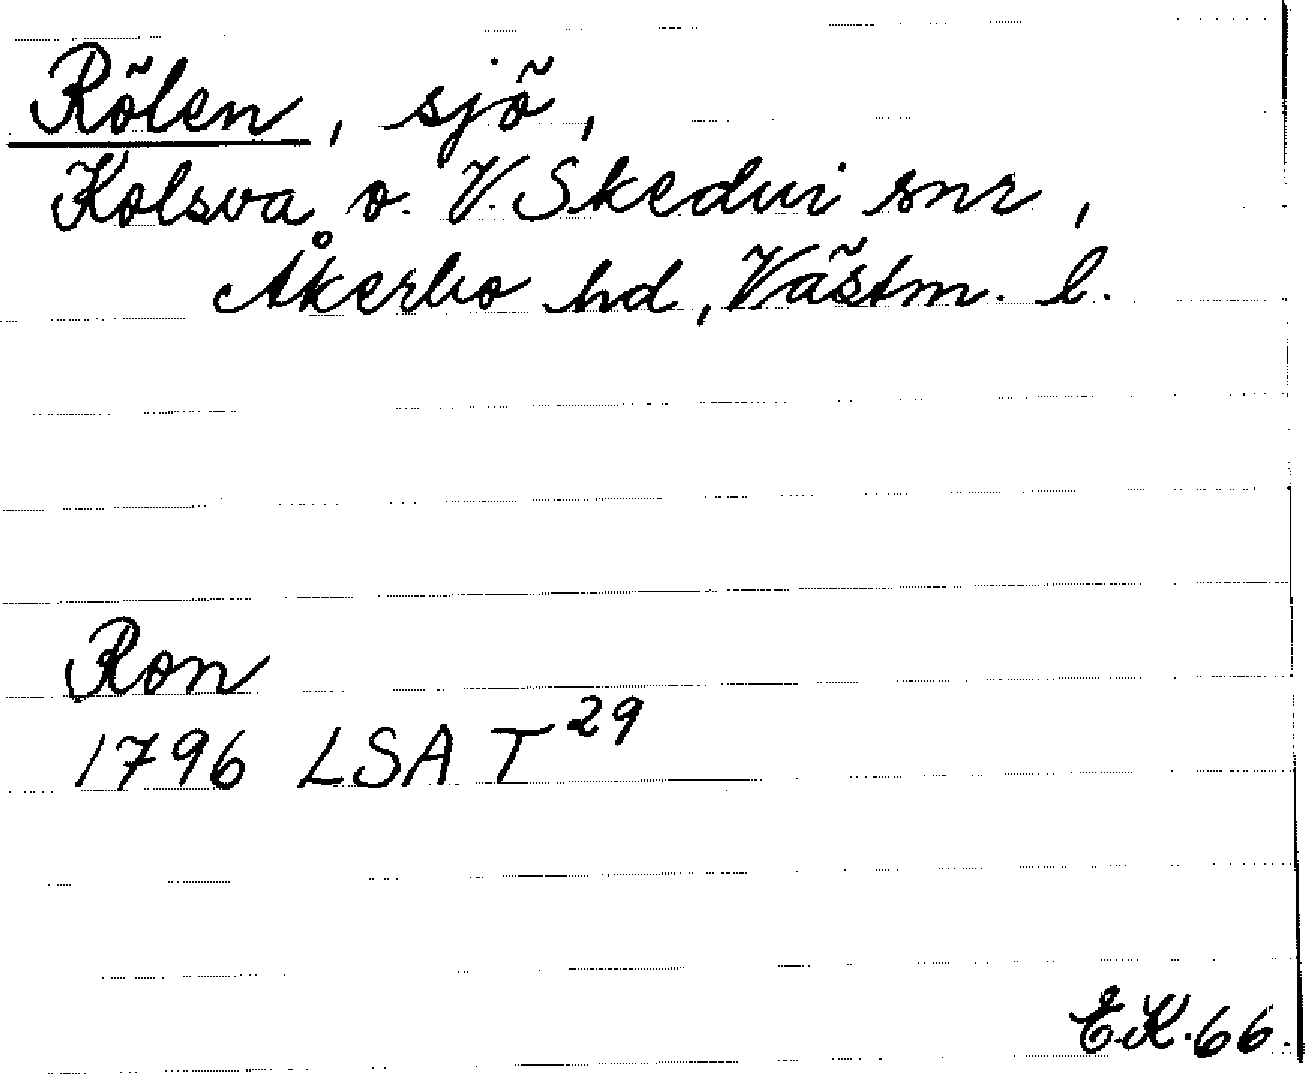 Rölen, sjö,
Kolsva o. V. Skedvi snr,
Åkerbo hd, Västm. l.
Ron
1796 LSA T 29
E.K. 66.